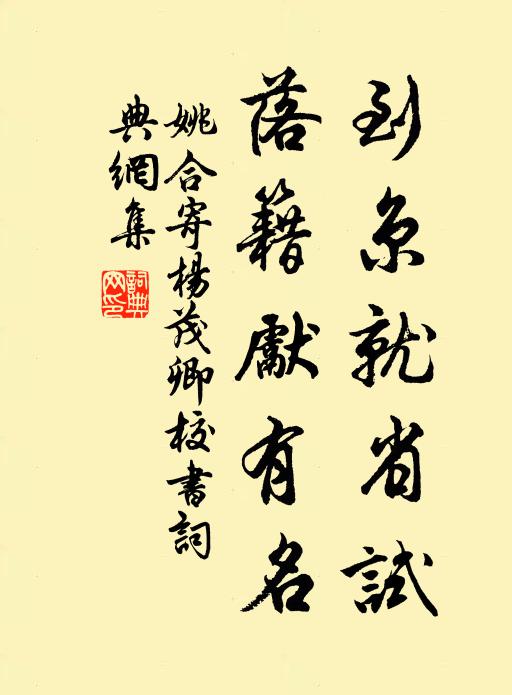 到京就省試
落籍獻有名
姚合寄楊茂卿校書詞
典網集
詞典網印